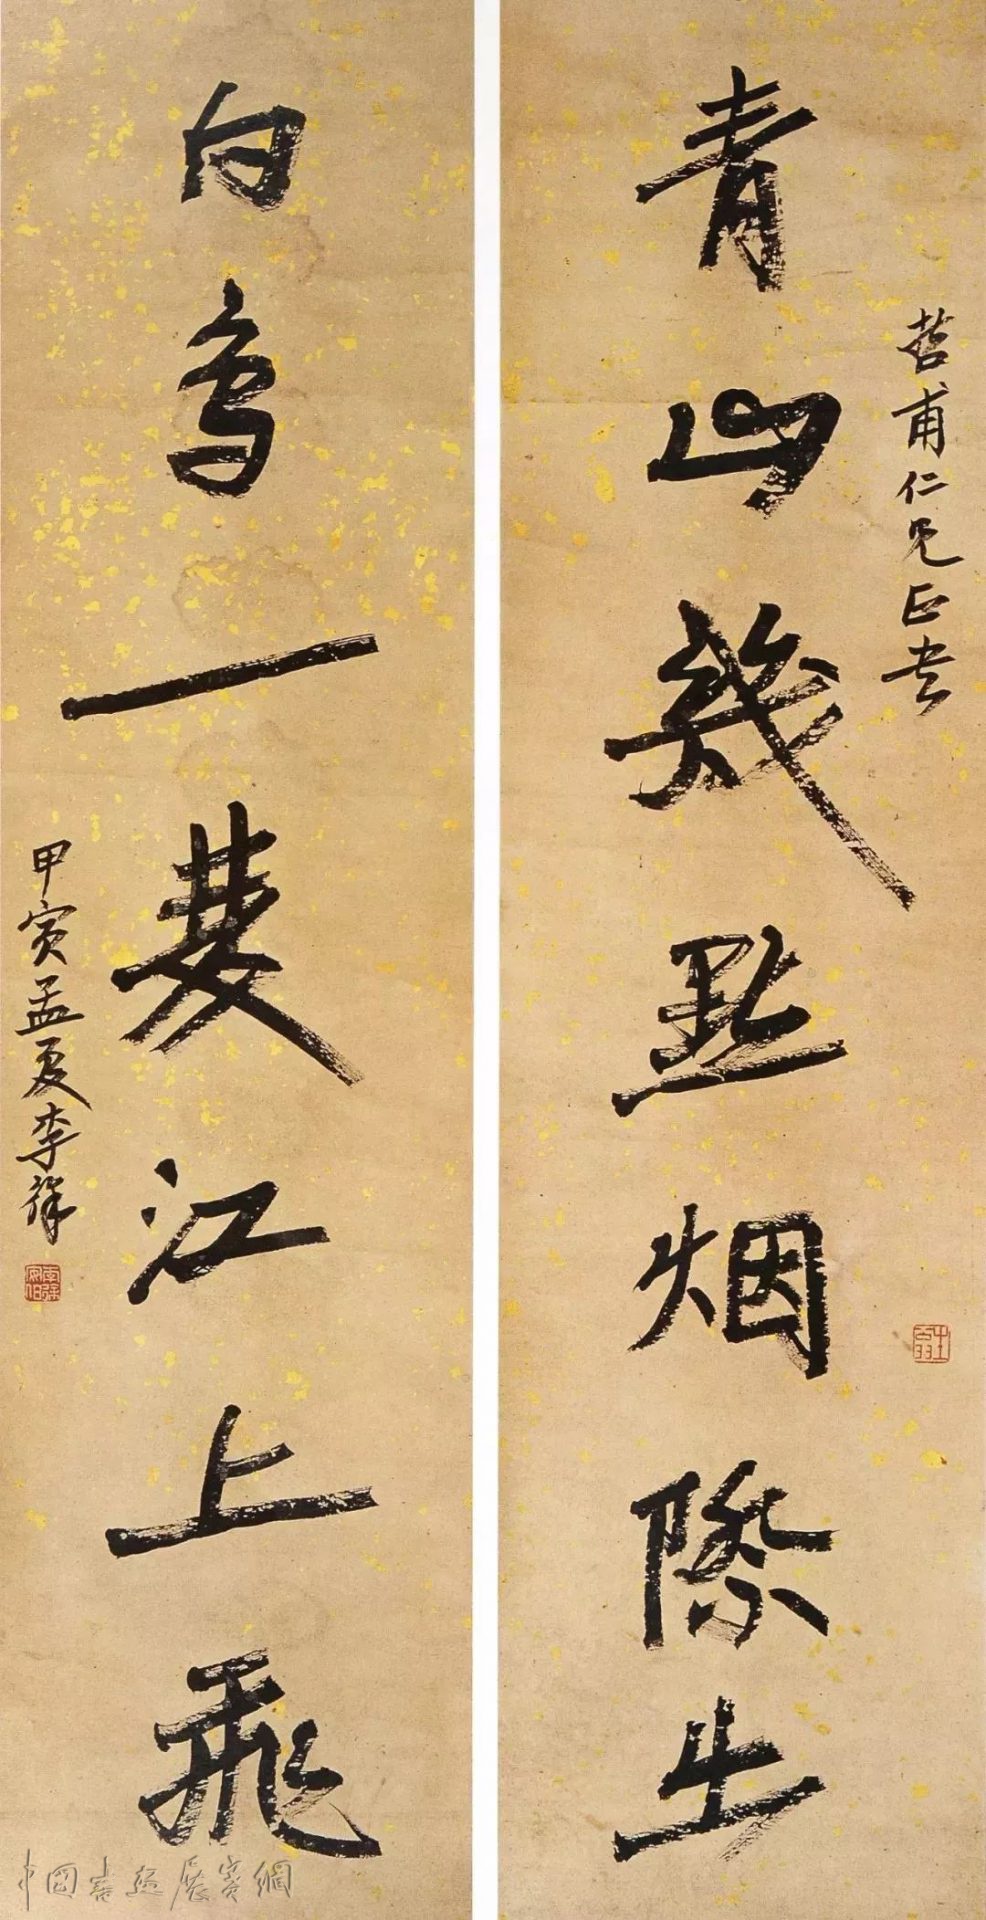 哲甫仁兄正
青山幾點烟際出
白鳥一雙江上飛
甲寅孟夏李祥
中國書法展賽網